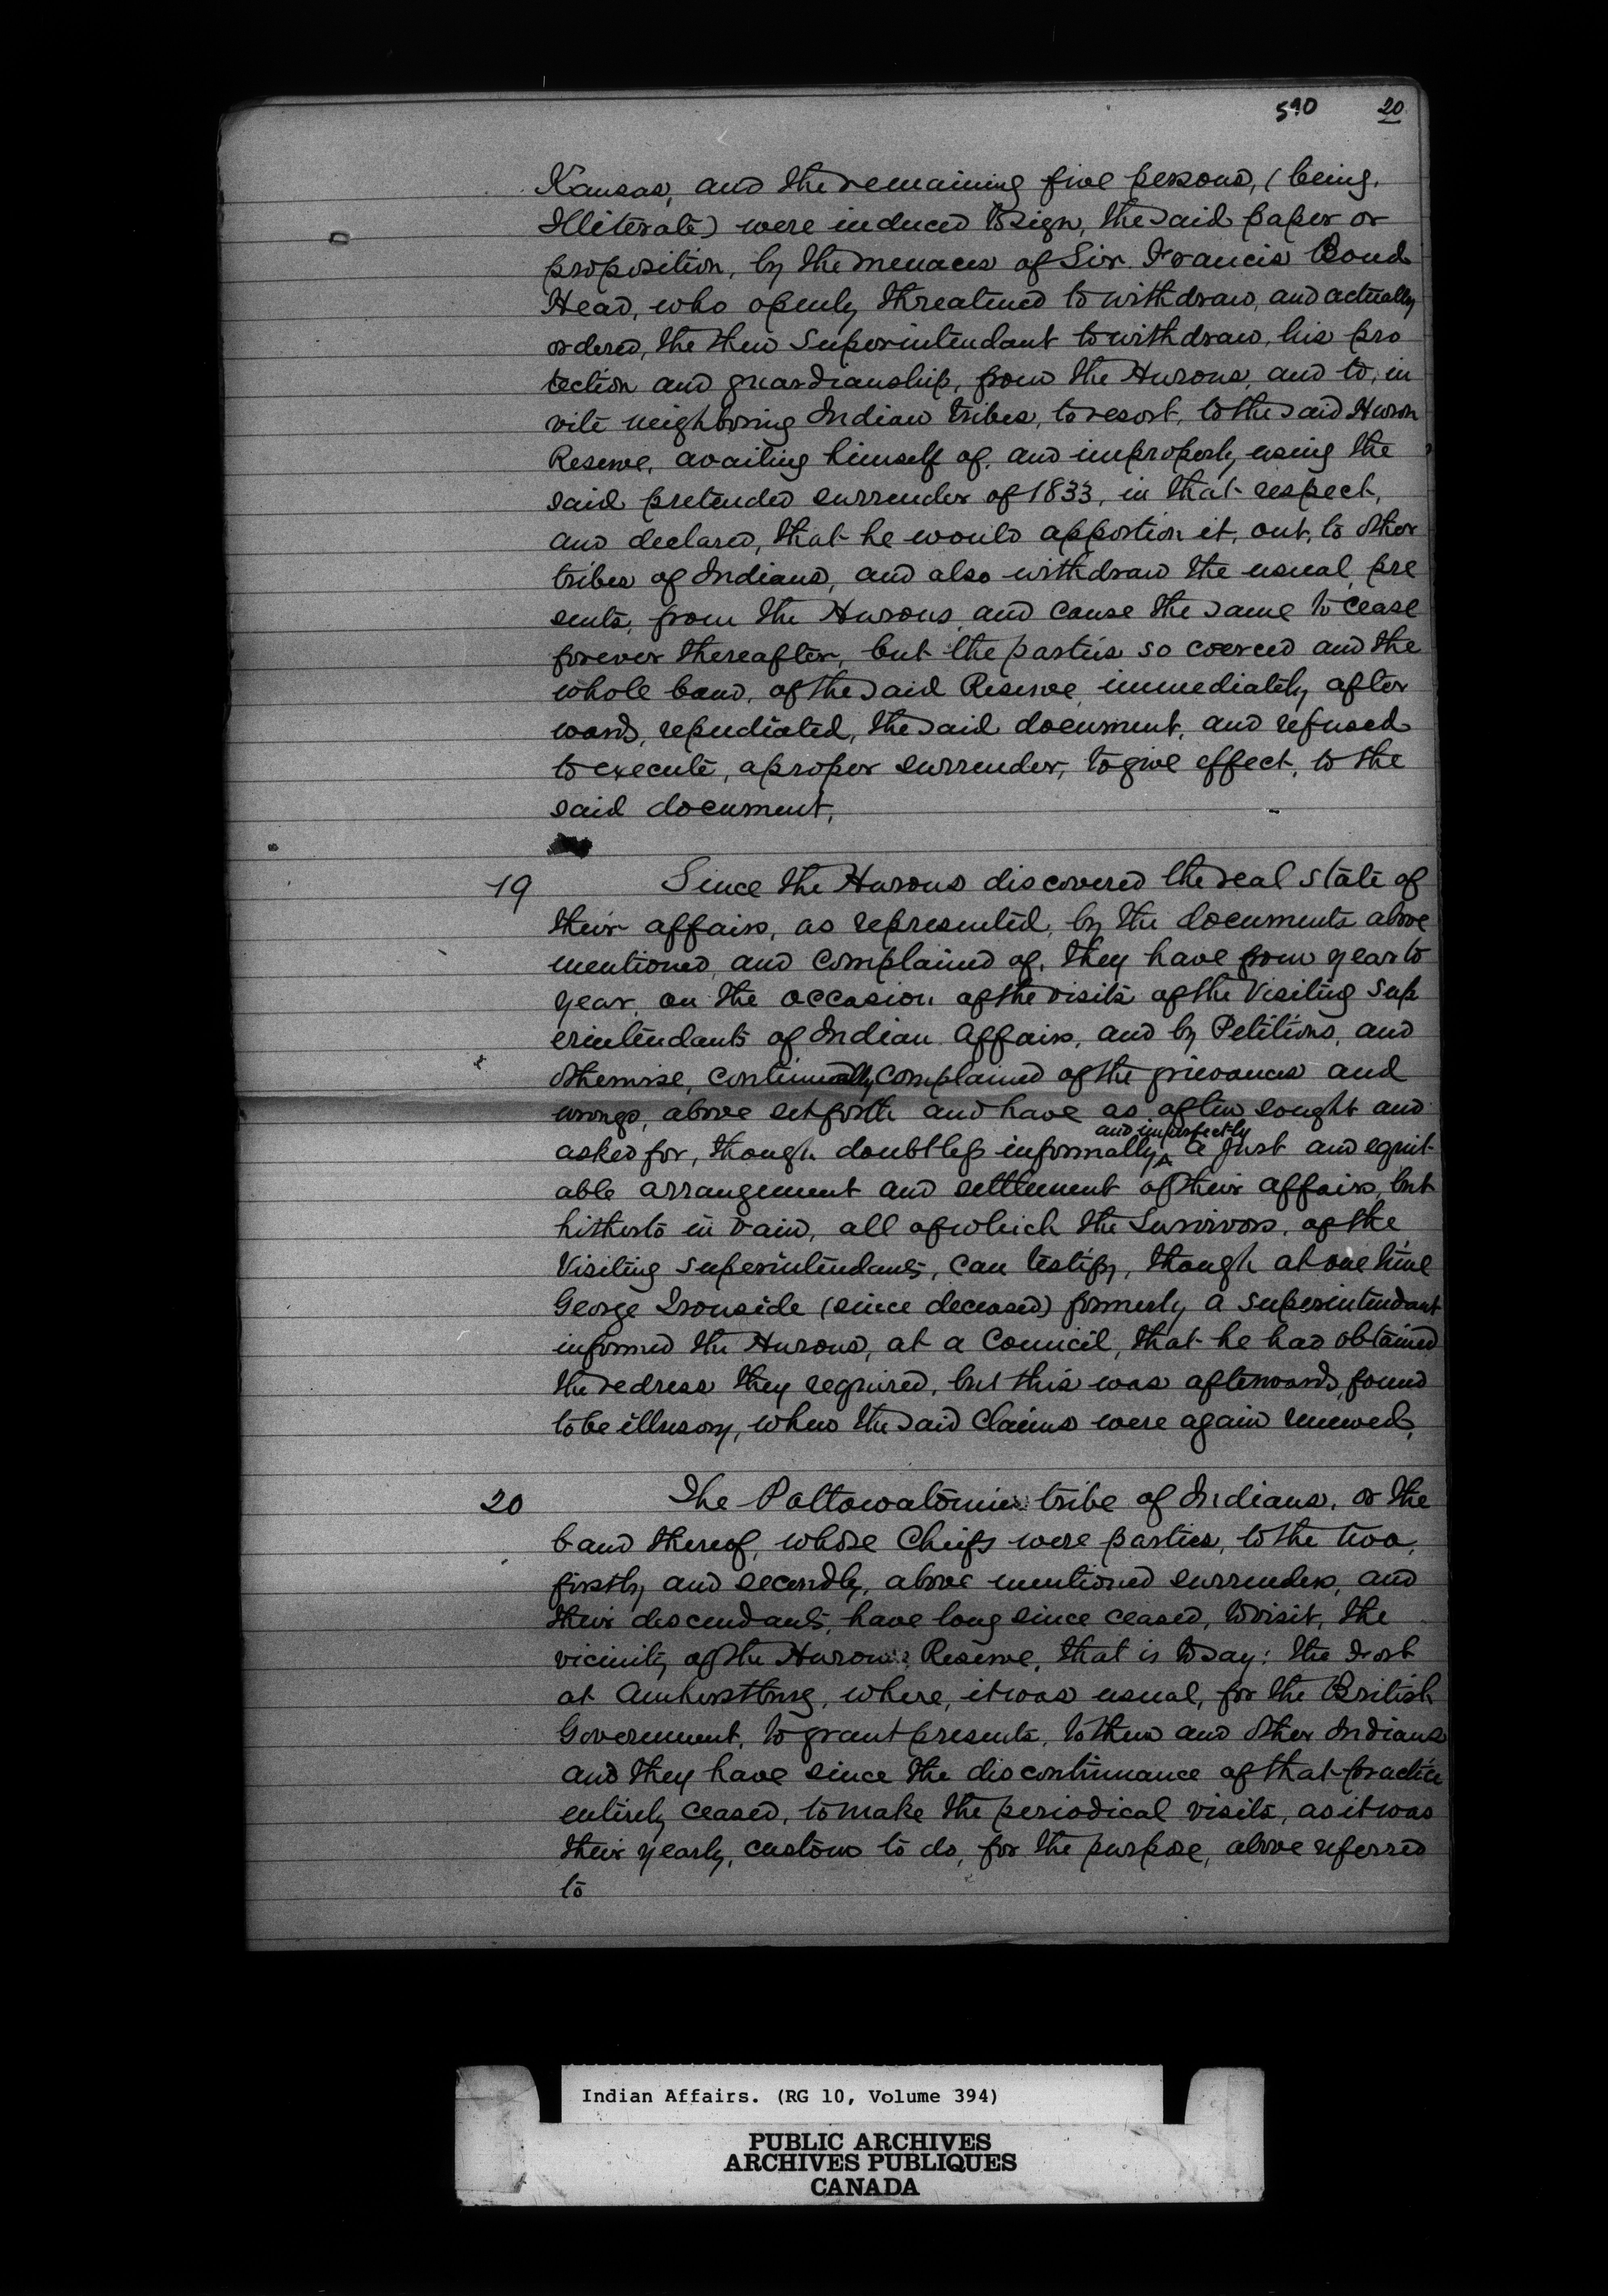 590 20
Kansas, and the remaining five persons, (being,
Illiterate) were induced to sign, the said paper or
proposition, by the menaces of Sir Francis Bond
Head, who openly threatened to withdraw, and actually
ordered, the then Superintendant to withdraw, his pro
tection and guardianship, from the Hurons, and to, in
vite neighboring Indian tribes, to resort, to the said Huron
Reserve, availing himself of, and improperly using the
said pretended surrender of 1833, in that respect,
and declared, that he would apportion it, out, to other
tribes of Indians, and also withdraw the usual pre
sents, from the Hurons, and cause the same to cease
forever thereafter, but the parties so coerced and the
whole band, of the said Reserve, immediately after
wards, repudiated, the said document, and refused
to execute, a proper surrender, to give effect, to the
said document,
19 Since the Hurons discovered the real state of
their affairs, as represented, by the documents above
mentioned, and complained of, they have from year to
year, on the occasion of the visits of the Visiting Sup
erintendants of Indian Affairs, and by Petitions, and
otherwise, continually complained of the grievances and
wrongs, above set forth and have as often sought and
and imperfectly
asked for, though doubtless informally, a just and equit
able arrangement and settlement of their affairs, but
hitherto in vain, all of which the Survivors, of the
Visiting Superintendants, can testify, though at one time
George Ironside (since deceased) formerly a Superintendant
informed the Hurons, at a Council, that he had obtained
the redress they required, but this was afterwards, found
to be illusory, when the said Claims were again renewed,
20 The Pottowatomie tribe of Indians, or the
band thereof, whose Cheifs were parties, to the two,
firstly, and secondly, above mentioned surrenders, and
their descendants, have long since ceased, to visit, the
vicinity of the Huron Reserve, that is to say: the Fort
at Amherstburg, where, it was usual, for the British
Government, to grant presents, to them and other Indians
and they have since the discontinuance of that practice
entirely ceased, to make the periodical visits, as it was
their yearly, custom to do, for the purpose, above referred
to
Indian Affairs. (RG 10, Volume 394)
PUBLIC ARCHIVES
ARCHIVES PUBLIQUES
CANADA